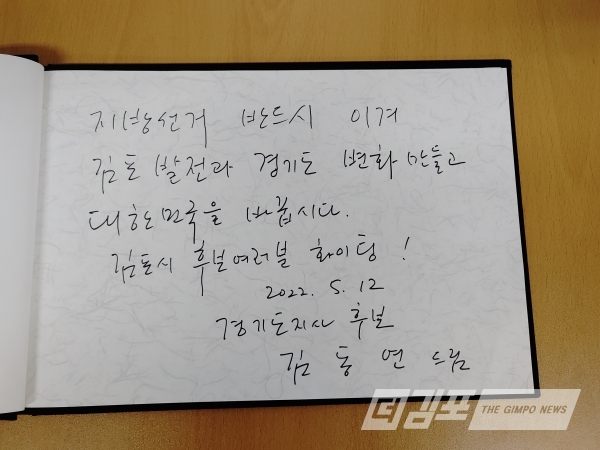 지방선거 반드시 이겨
김포 발전과 경기도 변화 만들고
대한민국을 바꿉시다.
김포시 후보여러분 화이팅!
2022. 5. 12
경기도지사 후보
김동연 드림
더김포 THE GIMPO NEWS